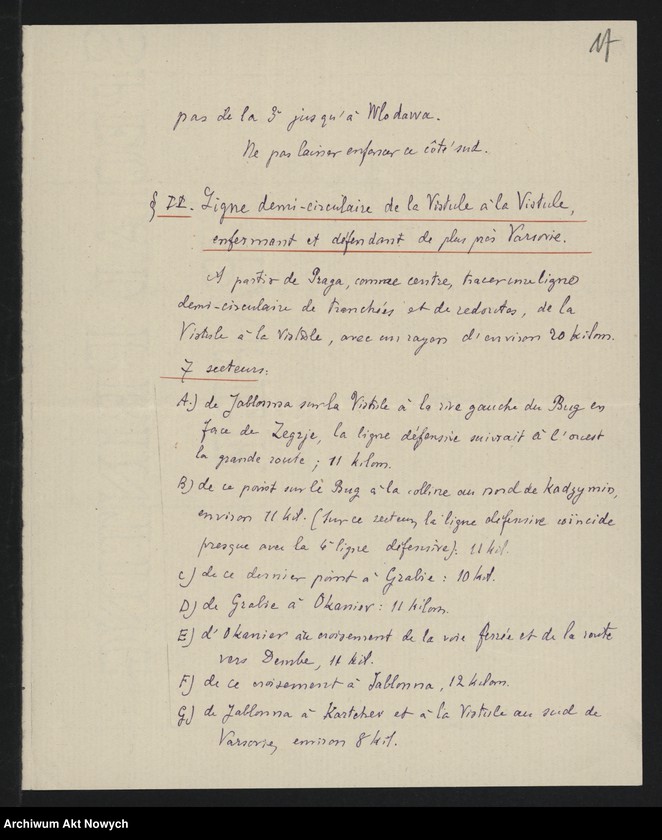 17
pas de la 3e jusqu'à Wlodawa.
Ne pas laisser enfoncer ce côté sud.
§ II. Ligne demi-circulaire de la Vistule à la Vistule,
enfermant et défendant de plus près Varsovie.
A partir de Praga, comme centre, tracer une ligne
demi-circulaire de tranchées et de redoutes, de la
Vistule à la Vistule, avec un rayon d'environ 20 kilom.
7 secteurs:
A.) de Jablonna sur la Vistule à la rive gauche du Bug en
face de Zegrje, la ligne défensive suivrait à l'ouest
la grande route; 11 kilom.
B) de ce point sur le Bug à la colline au nord de Kadzymin,
environ 11 kil. (Sur ce secteur, la ligne défensive coïncide
presque avec la 4e ligne défensive). 11 kil.
C) de ce dernier point à Grabie: 10 kil.
D) de Grabie à Okaniev: 11 kilom.
E) d'Okanier au croisement de la voie ferrée et de la route
vers Dembe, 11 kil.
F) de ce croisement à Jablonna, 12 kilom.
G) de Jablonna à Kartchev et à la Vistule au sud de
Varsovie, environ 8 kil.
Archiwum Akt Nowych